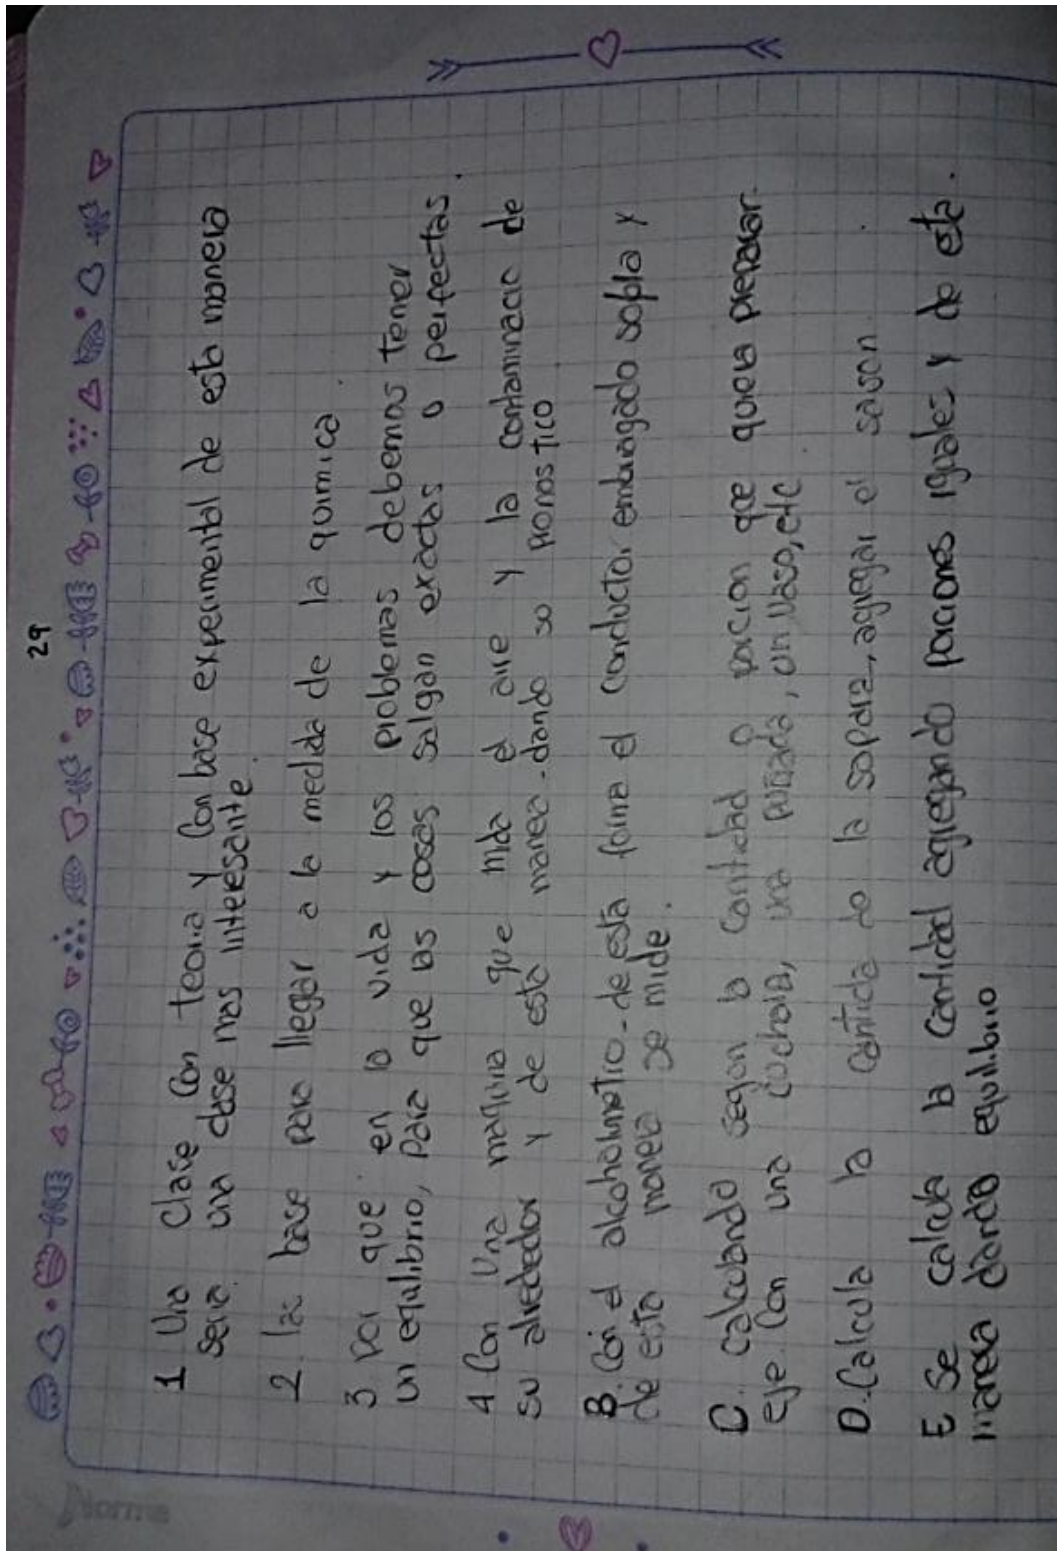 29
1 Una Clase Con teoria y Con base experimental de esta manera
seria una clase mas interesante.
2 las base para llegar a la medida de la quimica
3 Por que en la vida y los problemas debemos tener
un equilibrio, para que las cosas salgan exactas o perfectas.
4 Con Una maquina que mida el aire y la contaminacio de
su alrededor y de esta manera. dando su pronostico
B. Con el alcohalimetro - de esta forma el conductor embriagado sopla y
de esta manera se mide.
C. calculando segun la cantidad o porcion que quiera preparar.
eje. Con una cuchara, una pizcada, un Vaso, etc
D. Calcula la cantida de la sopara, agregar el sason.
E Se calcula la cantidad agregando porciones iguales y de esta.
manera dando equilibrio
Norma